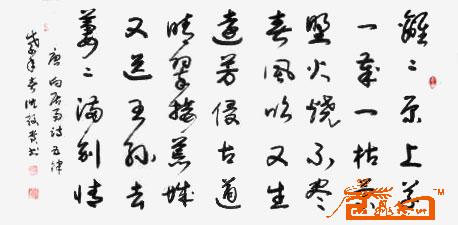 離〻原上草
一歲一枯荣
野火燒不盡
春風吹又生
遠芳侵古道
晴翠接荒城
又送王孫去
萋〻滿別情
唐 白居易诗 五律